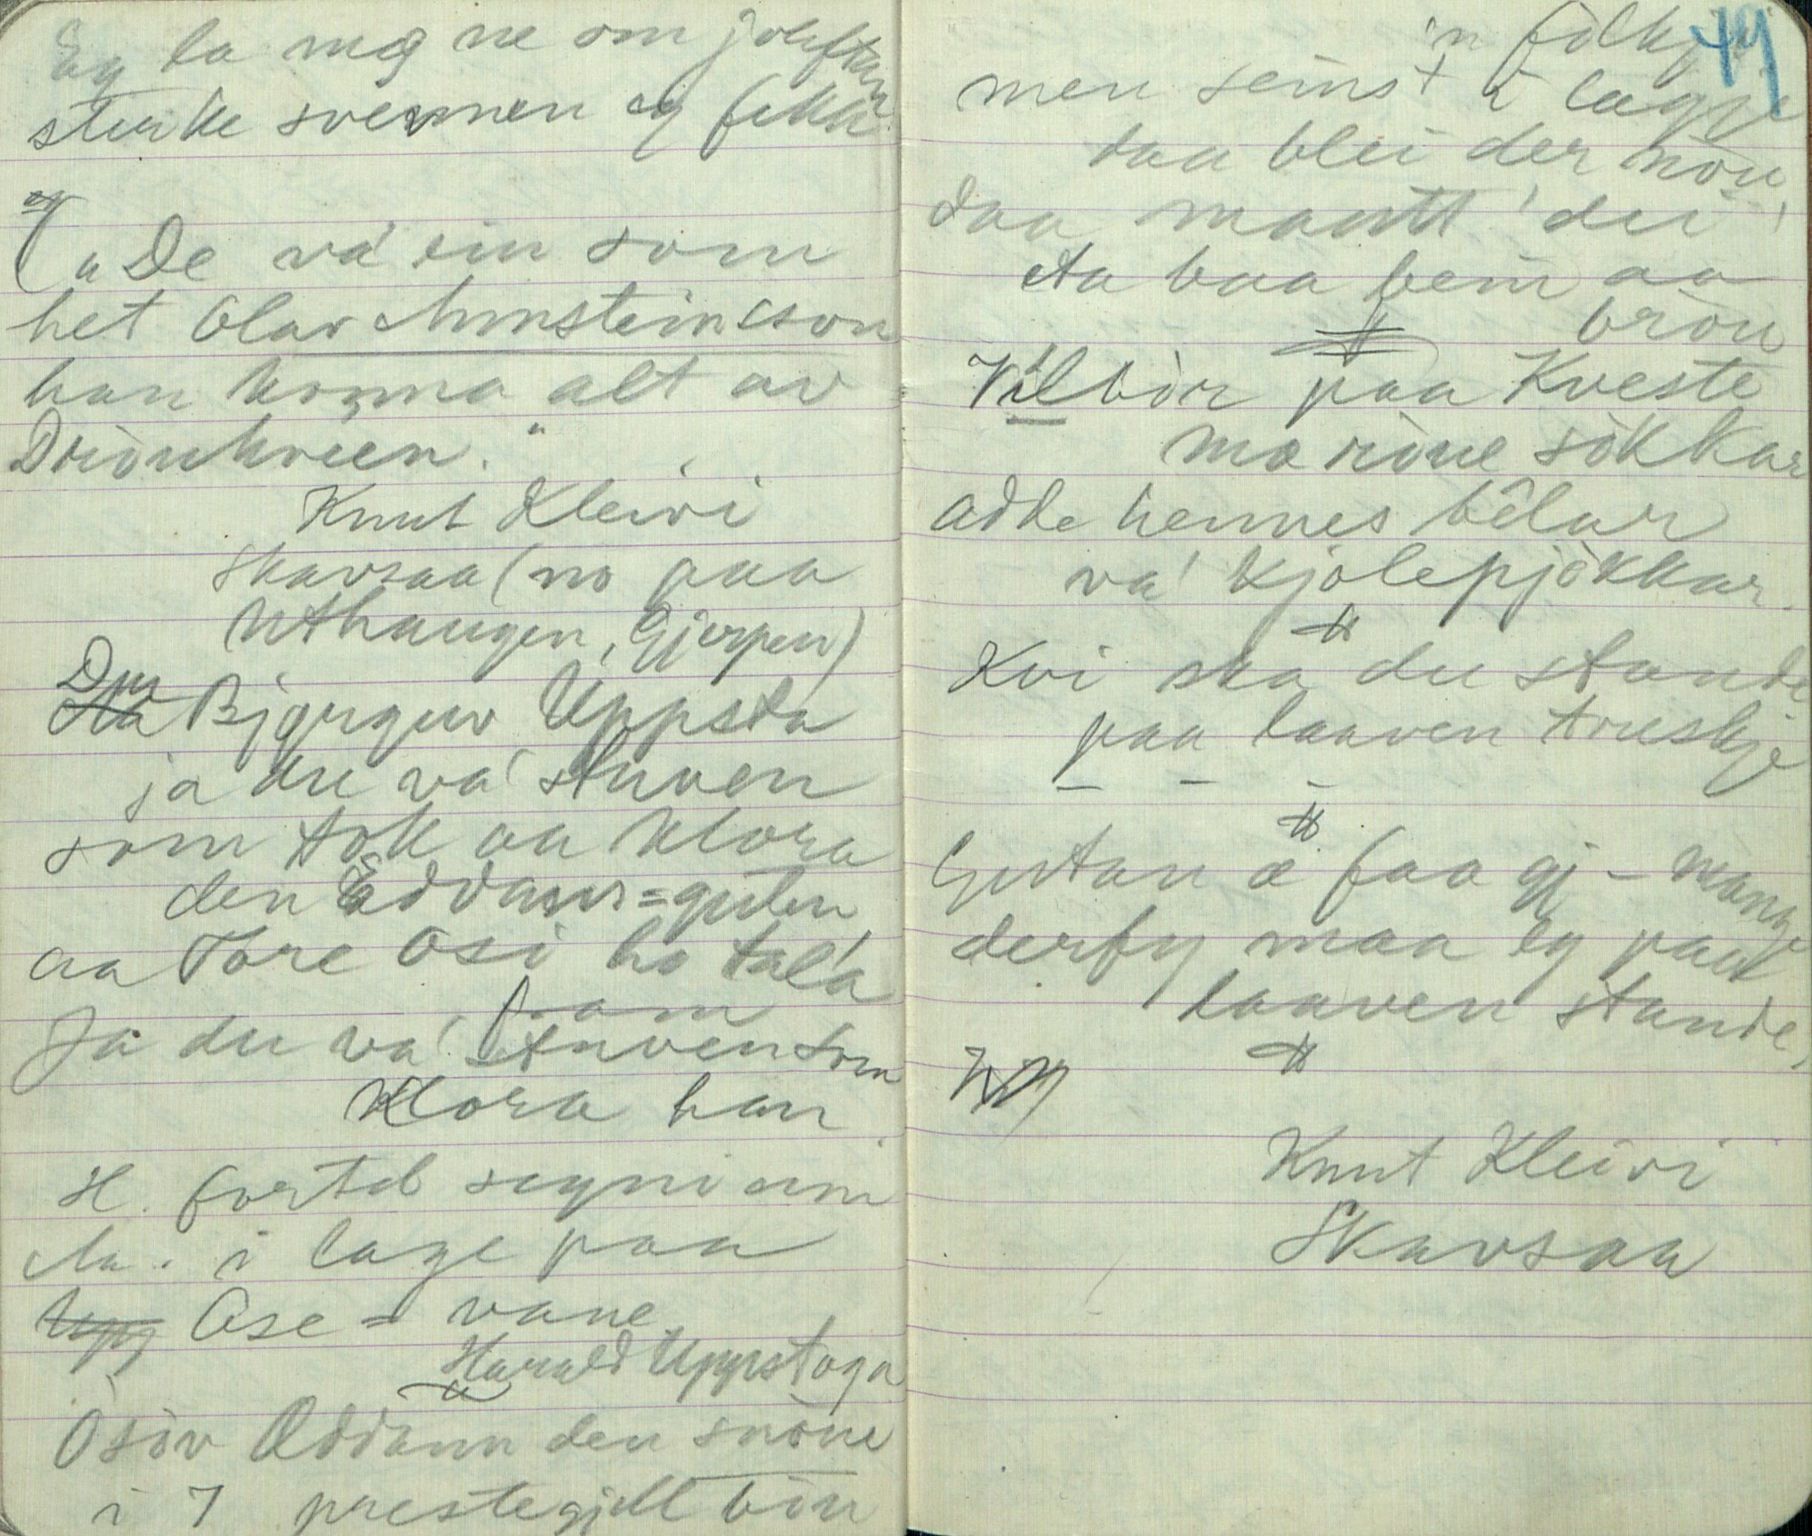 Eg la meg ne om joleftan
sterke svevnen eg fekk
eg
"De va' ein som
het Olav Aunsteinsson
han kunna alt av
Draumkvæen."
Knut Kleivi
Skavsaa (no paa
Nthaugen, Gjerpen)
Du
Bjørguv Uppsta
ja du va' stuven
som tok aa klora
den Eddans=guten
aa Tore Osi ho tala
fram
Ja du va' stuven som
klora han.
H. fortel segni um
i lage paa
Ose = vane.
Harald Uppstoga
Osöv Øddann den snöue
i 7 prestegjell bön
in fölkje
men seinst i læggje
daa blei der nöu
daa mautt' dei
eta baa bein aa
bröu
Vilbör paa Kveste
mæ röue sökkar
adde hennes bêlar
va' kjolepjökkar.
Kvi ska du stande
paa laaven treskje
– – –
Gjetan æ faa gj – mange
derfy maa eg paa
laaven stande,
Knut Kleivi
Skavsaa
49